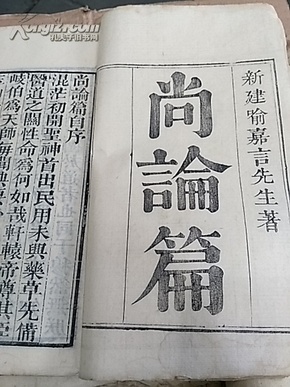 新建喻嘉言先生著
尚論篇
尚論篇自序
混茫初開聖神首出民用未興藥草先備
醫道之關性命為何如哉軒轅帝尊其臣
岐伯為天師每聞典